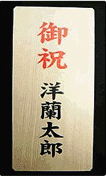 御祝
洋蘭太郎